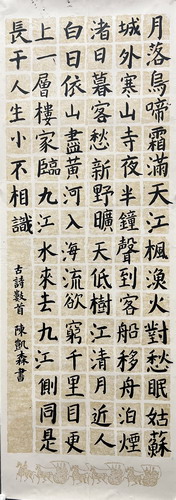 月落烏啼霜滿天江楓漁火對愁眠姑蘇
城外寒山寺夜半鐘聲到客船移舟泊煙
渚日暮客愁新野曠天低樹江清月近人
白日依山盡黃河入海流欲窮千里目更
上一層樓家臨九江水來去九江側同是
長干人生小不相識
古詩數首 陳凱森書